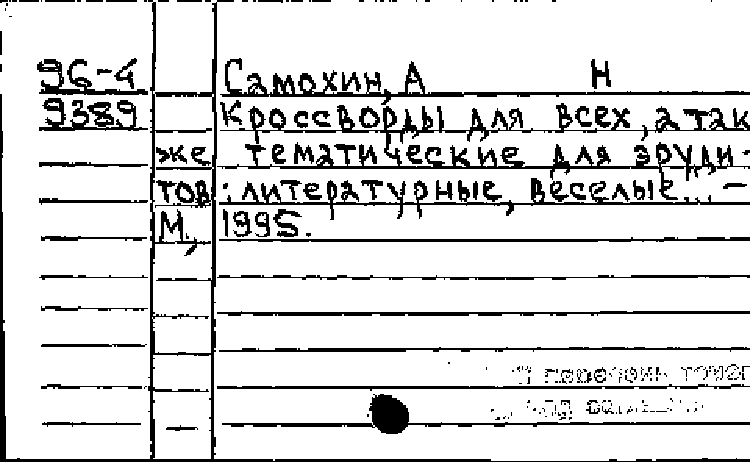 96-4 Самохин, А Н
9389 Кроссворды для всех, а так
же тематические для эруди-
тов: литературные, веселые... -
М., 1995.